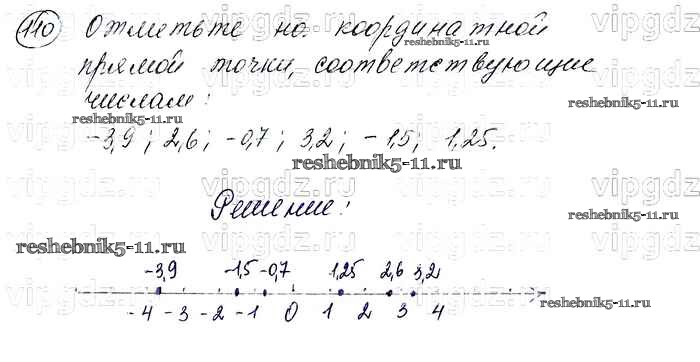 110 Отметьте на координатной
прямой точки, соответствующие
числам:
-3,9; 2,6; -0,7; 3,2; -1,5; 1,25.
Решение:
-3,9 -1,5 -0,7 1,25 2,6 3,2
-4 -3 -2 -1 0 1 2 3 4
vipgdz.ru
reshebnik5-11.ru
reshebnik5-11.ru
reshebnik5-11.ru
reshebnik5-11.ru
reshebnik5-11.ru
reshebnik5-11.ru